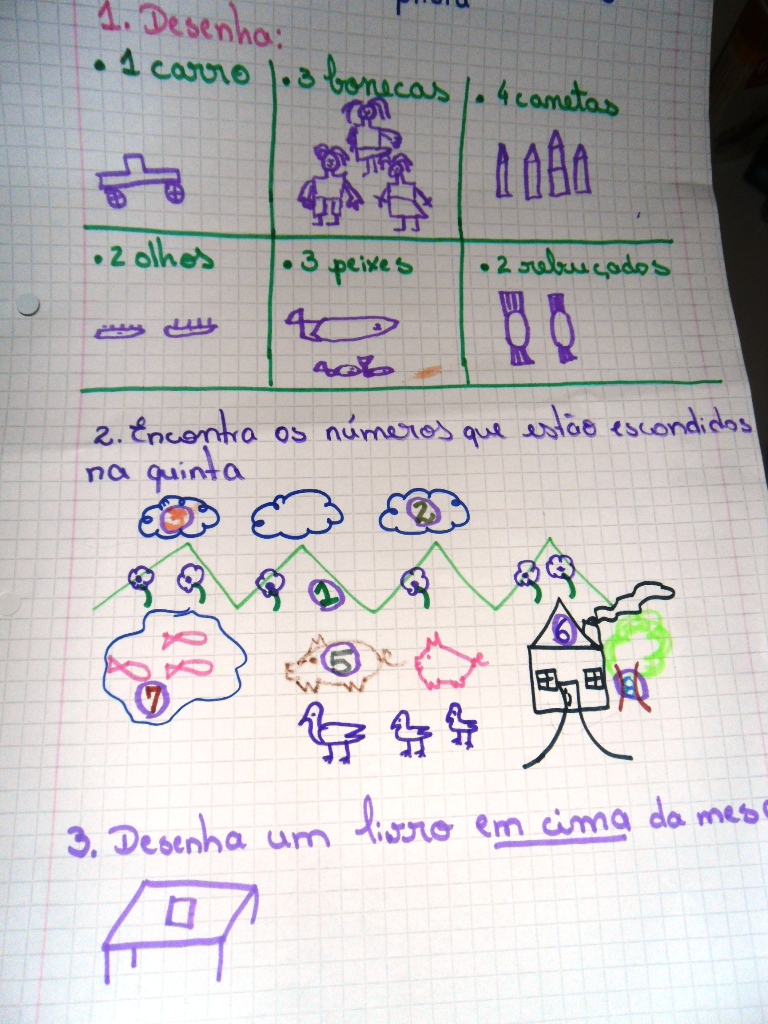 1. Desenha:
• 1 carro
• 3 bonecas
• 4 canetas
• 2 olhos
• 3 peixes
• 2 rebuçados
2. Encontra os números que estão escondidos
na quinta
3
2
1
6
5
7
3. Desenha um livro em cima da mesa